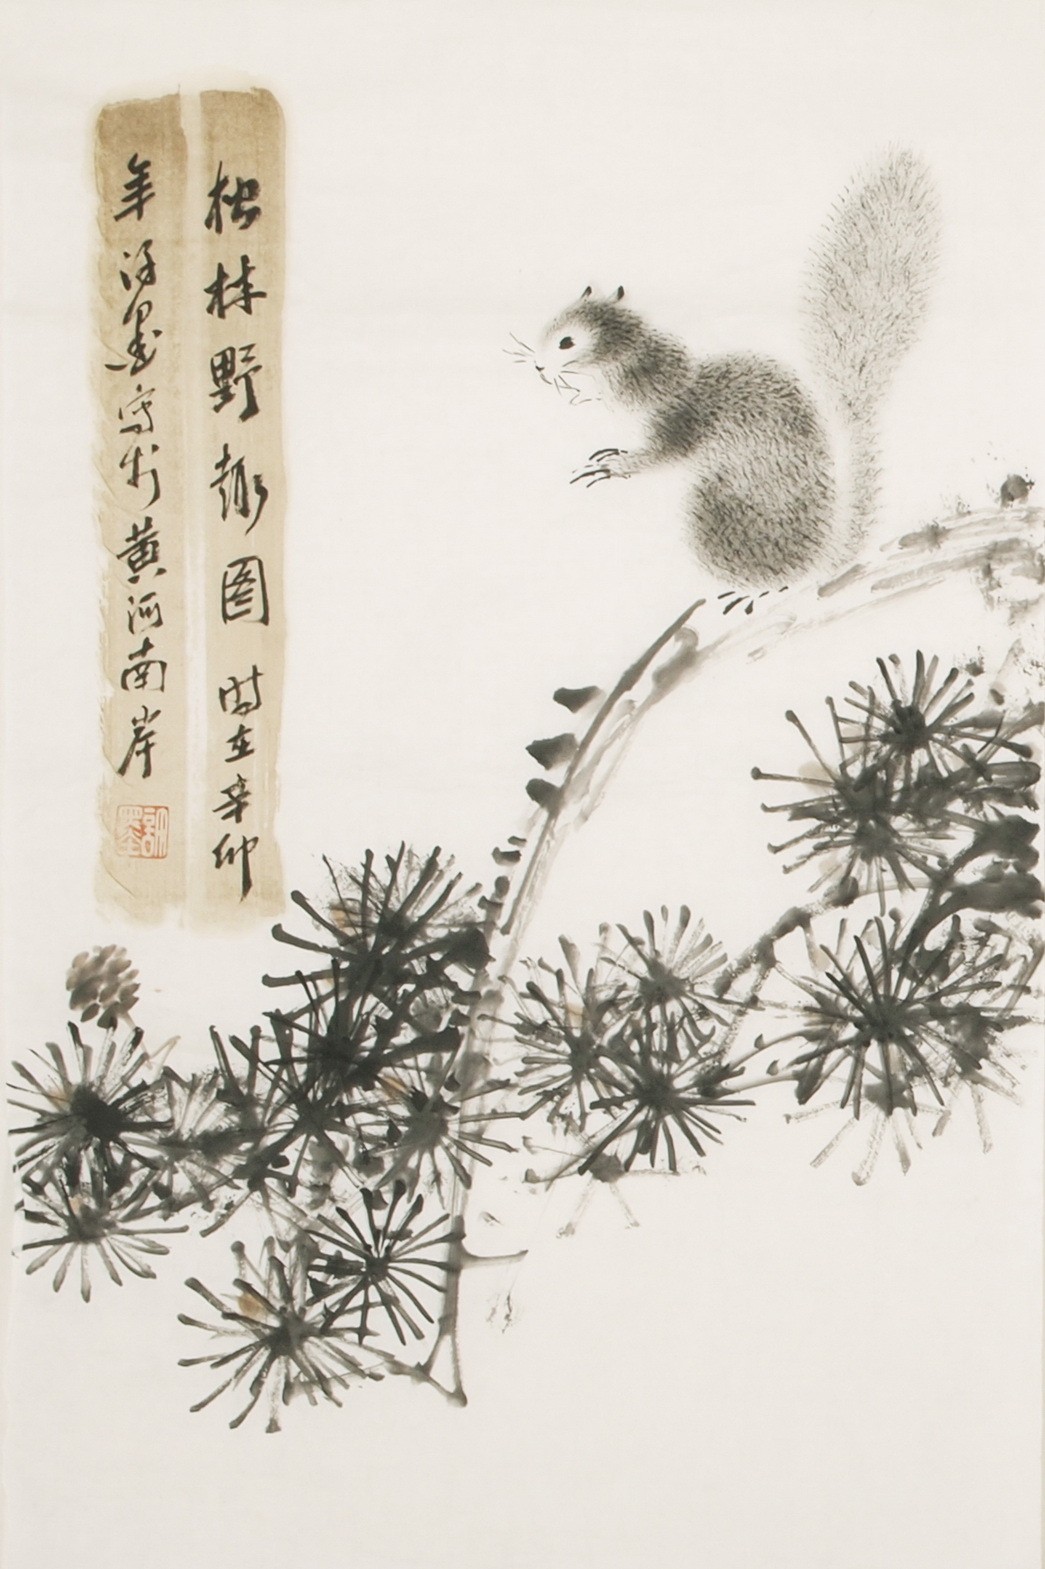 松林野趣图 时在辛卯
年许墨写於黄河南岸
許墨